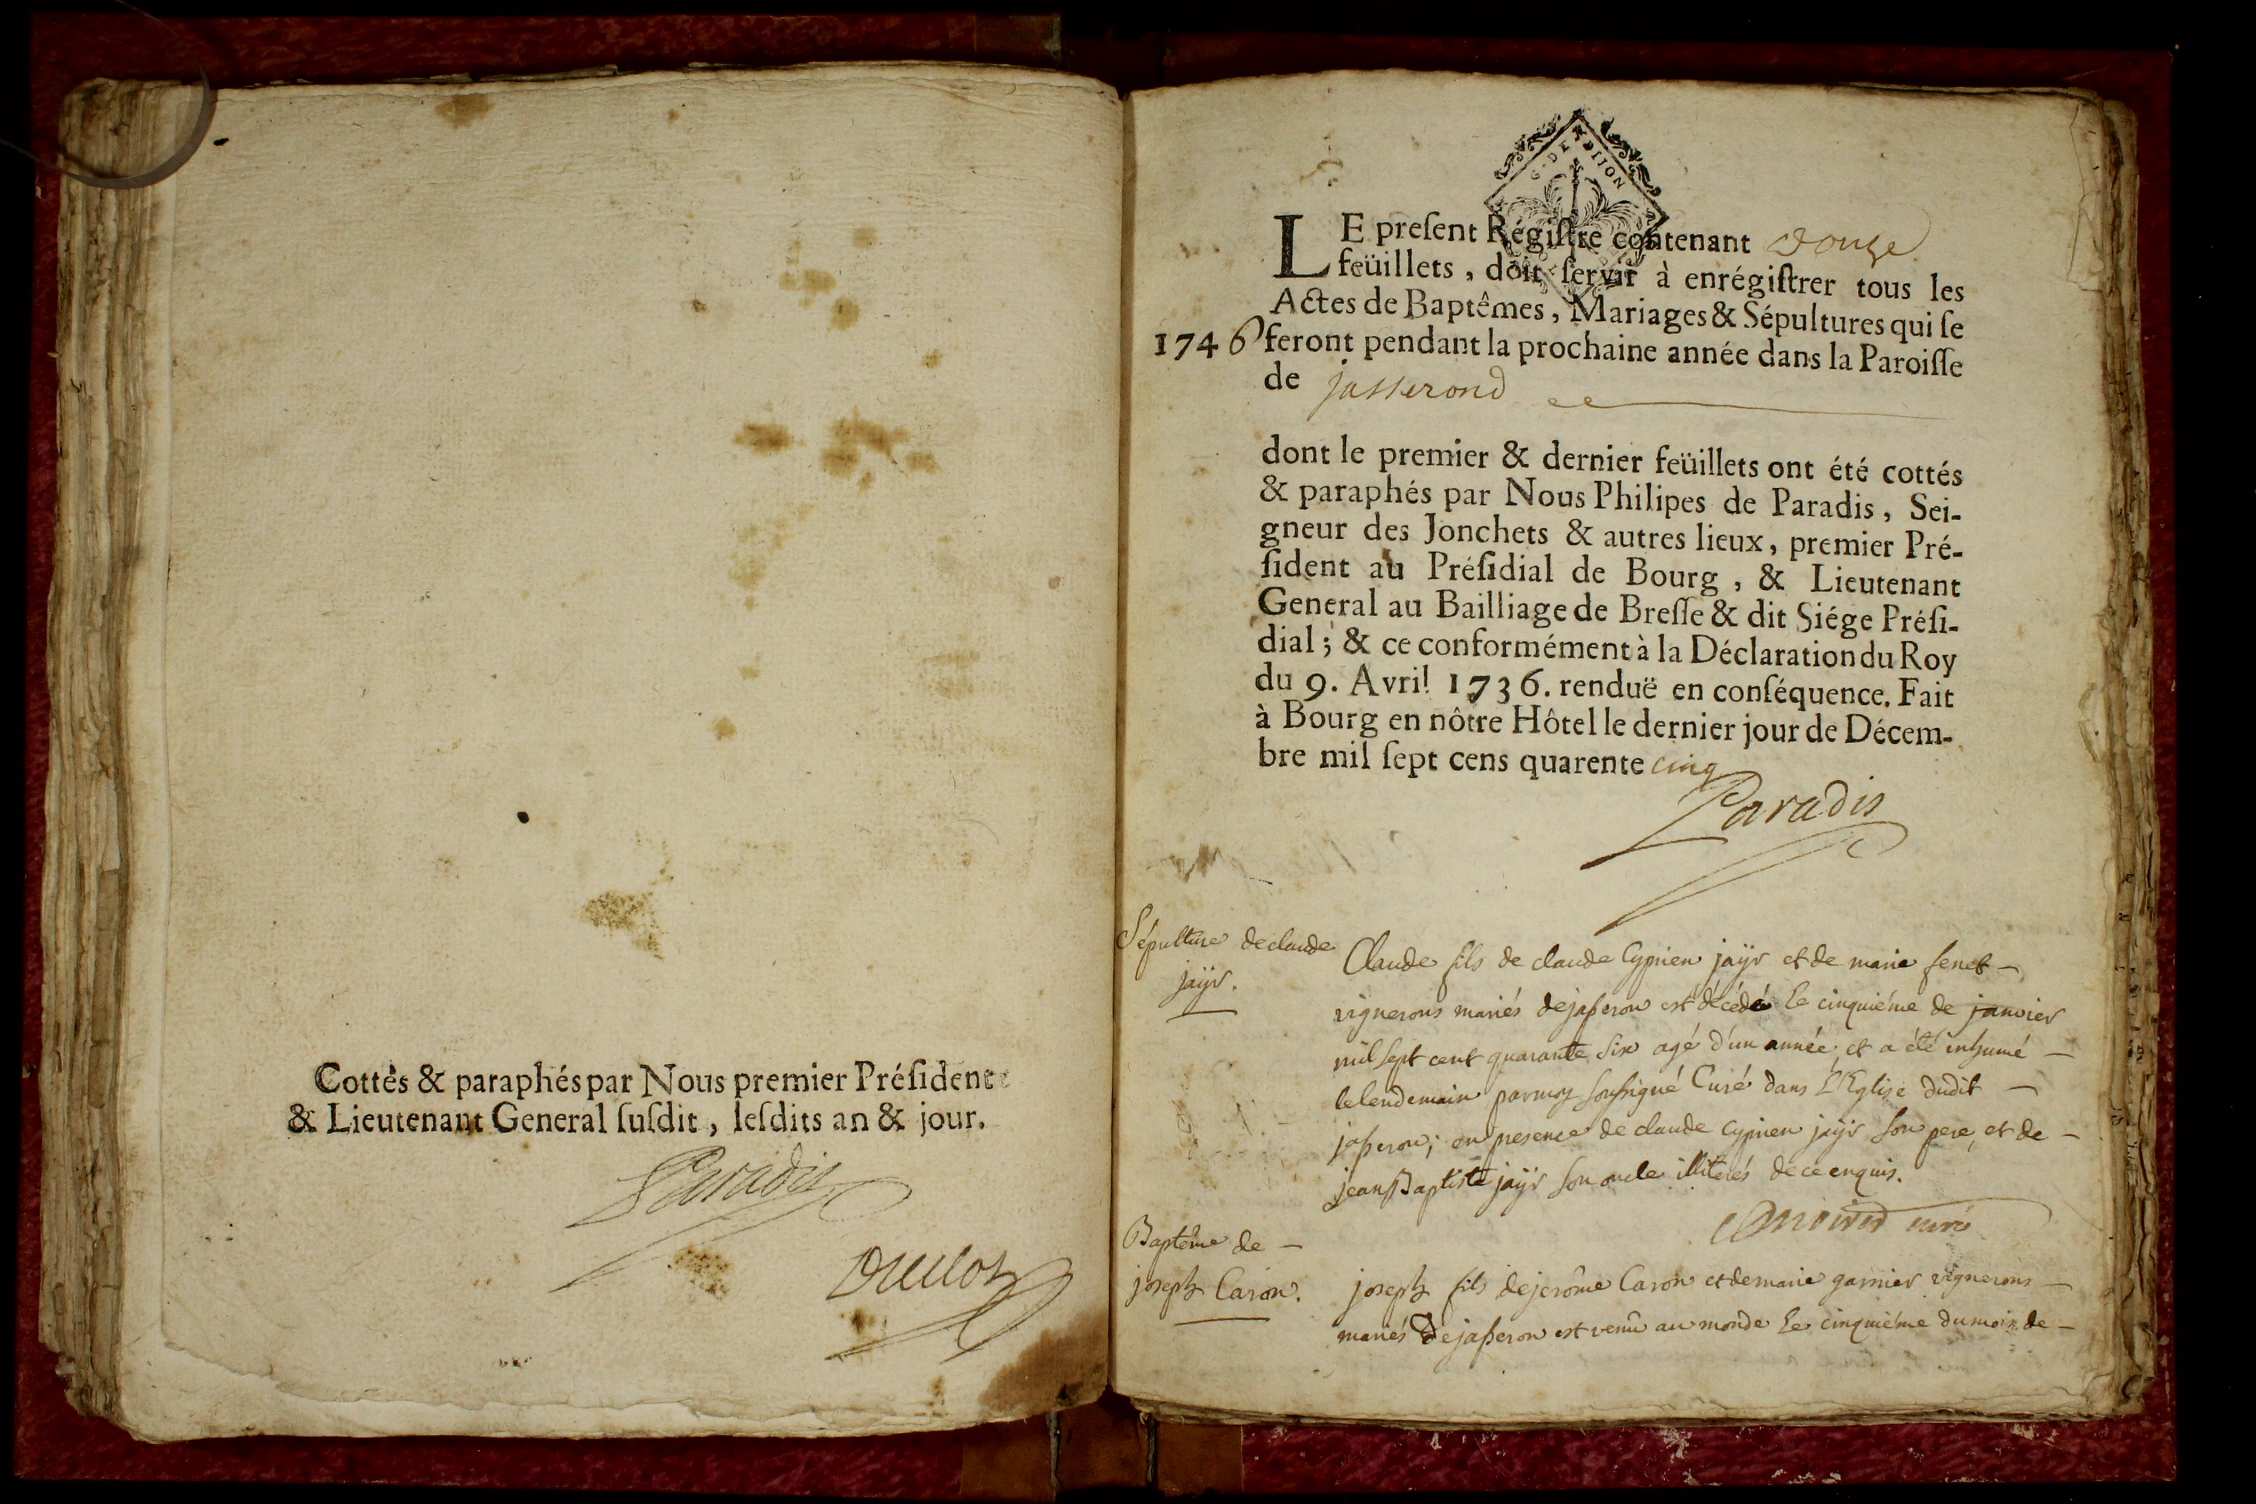 Cottés & paraphés par Nous premier Préſident
& Lieutenant General ſuſdit, leſdits an & jour.
Paradis
G. DE DIJON
LE preſent Régiſtre contenant douze
feüillets, doit ſervir à enrégiſtrer tous les
Actes de Baptêmes, Mariages & Sépultures qui ſe
1746 feront pendant la prochaine année dans la Paroiſſe
de jasserond
dont le premier & dernier feüillets ont été cottés
& paraphés par Nous Philipes de Paradis, Sei-
gneur des Jonchets & autres lieux, premier Pré-
ſident au Préſidial de Bourg, & Lieutenant
General au Bailliage de Breſſe & dit Siége Préſi-
dial; & ce conformément à la Déclaration du Roy
du 9. Avril 1736. renduë en conſéquence. Fait
à Bourg en nôtre Hôtel le dernier jour de Décem-
bre mil ſept cens quarente cinq
Paradis
Sépulture de claude
jaÿr.
Claude fils de claude Cyprien jaÿr et de marie fenet —
vignerons mariés de jaſseron est décédé le cinquiéme de janvier
mil sept cent quarante six agé d'un année et a été inhumé —
le lendemain par moy soussigné Curé dans L'Eglise dudit —
jaſseron; en presence de claude cyprien jaÿr son pere, et de —
jean Baptiste jaÿr son oncle illiterés de ce enquis.
curé
Baptême de —
joseph Caron.
joseph fils de jerôme Caron et de marie garnier vignerons —
mariés de jaſseron est venû au monde le cinquiéme du mois de —